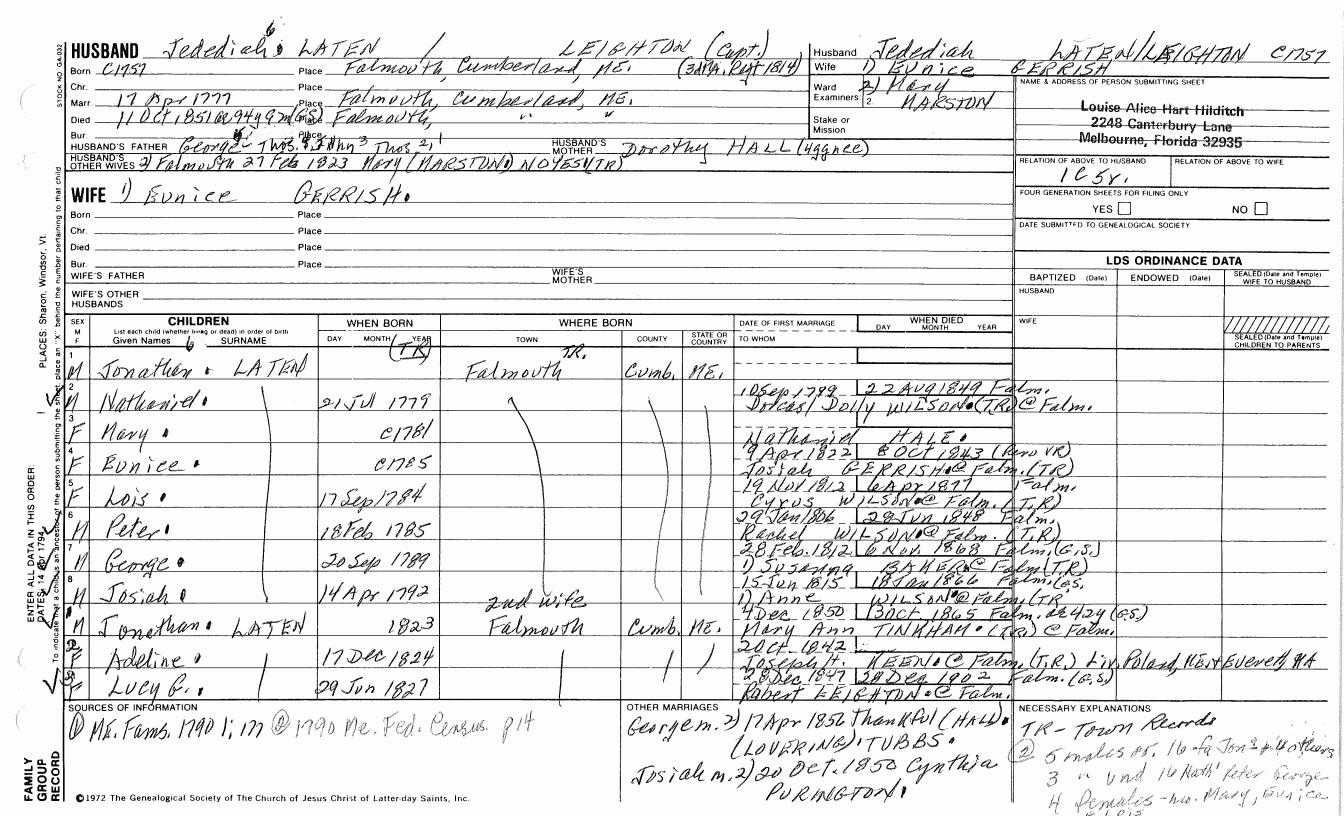 HUSBAND Jedediah 6 LATEN / LEIGHTON (Capt.)
Born C1757 Place Falmouth, Cumberland, ME.
Chr. Place
Marr 17 Apr 1777 Place Falmouth, Cumberland, ME.
Died 11 Oct 1851 @ 94y 9m (GS) Place Falmouth, " "
Bur Place
HUSBAND'S FATHER George Thos. John 3 Thos 2, 1 HUSBAND'S MOTHER Dorothy HALL
HUSBAND'S OTHER WIVES 2) Falmouth 27 Feb 1823 Mary (MARSTON) NOYES (TR)
Husband Jedediah LATEN/LEIGHTON C1757
Wife 1) Eunice GERRISH
2) Mary MARSTON
Ward
Examiners 2
Stake or Mission
NAME & ADDRESS OF PERSON SUBMITTING SHEET
Louise Alice Hart Hilditch
2248 Canterbury Lane
Melbourne, Florida 32935
RELATION OF ABOVE TO HUSBAND RELATION OF ABOVE TO WIFE
1C5r.
FOUR GENERATION SHEETS FOR FILING ONLY
YES NO
DATE SUBMITTED TO GENEALOGICAL SOCIETY
WIFE 1) Eunice GERRISH.
Born Place
Chr. Place
Died Place
Bur. Place
WIFE'S FATHER WIFE'S MOTHER
WIFE'S OTHER HUSBANDS
LDS ORDINANCE DATA
BAPTIZED (Date) ENDOWED (Date) SEALED (Date and Temple) WIFE TO HUSBAND
HUSBAND
WIFE
SEALED (Date and Temple) CHILDREN TO PARENTS
SEX M F
CHILDREN
List each child (whether living or dead) in order of birth
Given Names 6 SURNAME
WHEN BORN
DAY MONTH YEAR (TR)
WHERE BORN
TOWN TR. COUNTY STATE OR COUNTRY
DATE OF FIRST MARRIAGE
TO WHOM
WHEN DIED
DAY MONTH YEAR
1 M Jonathan. LATEN Falmouth Cumb. ME.
2 M Nathaniel. 21 Jul 1779 10 Sep 1799 22 Aug 1849 Falm.
Dorcas/Dolly WILSON. (T.R.) @ Falm.
3 F Mary. C1781
Nathaniel HALE.
4 F Eunice. C1785 9 Apr 1822 8 Oct 1843
Josiah GERRISH. @ Falm. (TR)
5 F Lois. 17 Sep 1784 19 Nov 1812 6 Apr 1877 Falm.
Cyrus WILSON. @ Falm. (T.R)
6 M Peter. 18 Feb 1785 29 Jan 1806 28 Jun 1848 Falm.
Rachel WILSON. @ Falm. (T.R)
7 M George. 20 Sep 1789 28 Feb. 1812 6 Nov. 1868 Falm. (G.S.)
1) Susanna BAKER. @ Falm (T.R)
8 M Josiah. 14 Apr 1792 15 Jun 1815 18 Jan 1866 Falm. GS.
1) Anne WILSON. @ Falm. (TR.
2nd wife
M Jonathan. LATEN 1823 Falmouth Cumb. ME. 4 Dec 1850 13 Oct 1865 Falm. ae 42y (G.S)
Mary Ann TINKHAM. (T.R.) @ Falm.
F Adeline. 17 Dec 1824 2 Oct. 1842
Joseph H. KEEN. @ Falm. (T.R.) Liv. Poland, ME. + Everett, MA
F Lucy G. 29 Jun 1827 28 Dec 1847 28 Dec 1902 Falm. (G.S)
Robert LEIGHTON. @ Falm.
SOURCES OF INFORMATION
① ME. Fams. 1790 1; 177 ② 1790 Me. Fed. Census. p 14
OTHER MARRIAGES
George m. 2) 17 Apr 1856 Thankful (HALL).
(LOVERING). TUBBS.
Josiah m. 2) 20 Oct. 1850 Cynthia
PURINGTON.
NECESSARY EXPLANATIONS
TR - Town Records
② 5 males ov. 16 - fa Jon
3 " und 16 Nath' Peter George
4 females - mo. Mary, Eunice
©1972 The Genealogical Society of The Church of Jesus Christ of Latter-day Saints, Inc.
FAMILY GROUP RECORD
ENTER ALL DATA IN THIS ORDER
DATES: 14 Apr 1794
PLACES: Sharon, Windsor, Vt.
To indicate that a child is an ancestor of the person submitting the sheet, place an "X" behind the number pertaining to that child
STOCK NO. GA.032